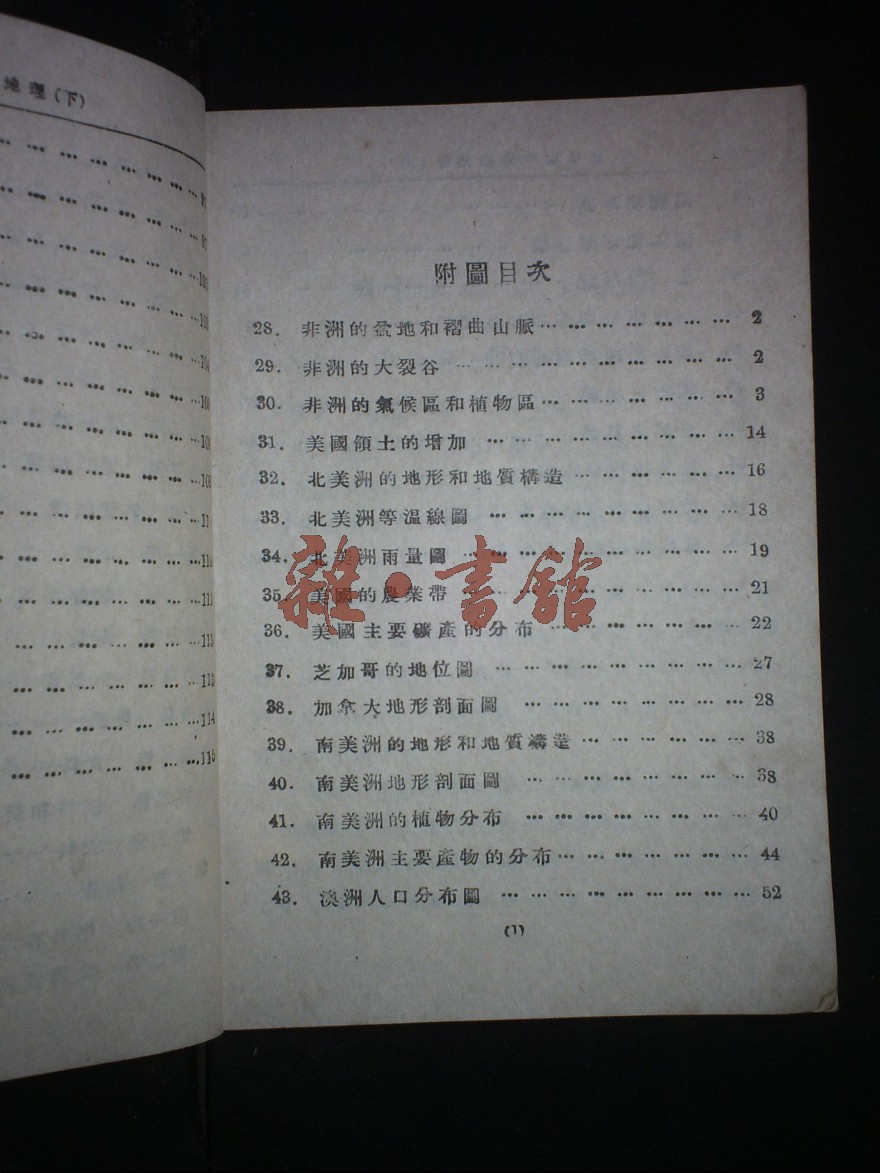 地理(下)
附圖目次
28. 非洲的盆地和褶曲山脈 … … … … … … … 2
29. 非洲的大裂谷 … … … … … … … … … 2
30. 非洲的氣候區和植物區 … … … … … … … 3
31. 美國領土的增加 … … … … … … … … 14
32. 北美洲的地形和地質構造 … … … … … … 16
33. 北美洲等溫線圖 … … … … … … … … 18
34. 北美洲雨量圖 … … … … … … … … … 19
35. 美國的農業帶 … … … … … … … … … 21
36. 美國主要礦產的分布 … … … … … … … 22
37. 芝加哥的地位圖 … … … … … … … … 27
38. 加拿大地形剖面圖 … … … … … … … 28
39. 南美洲的地形和地質構造 … … … … … … 38
40. 南美洲地形剖面圖 … … … … … … … 38
41. 南美洲的植物分布 … … … … … … … 40
42. 南美洲主要產物的分布 … … … … … … 44
43. 澳洲人口分布圖 … … … … … … … … 52
(1)
雜·書館